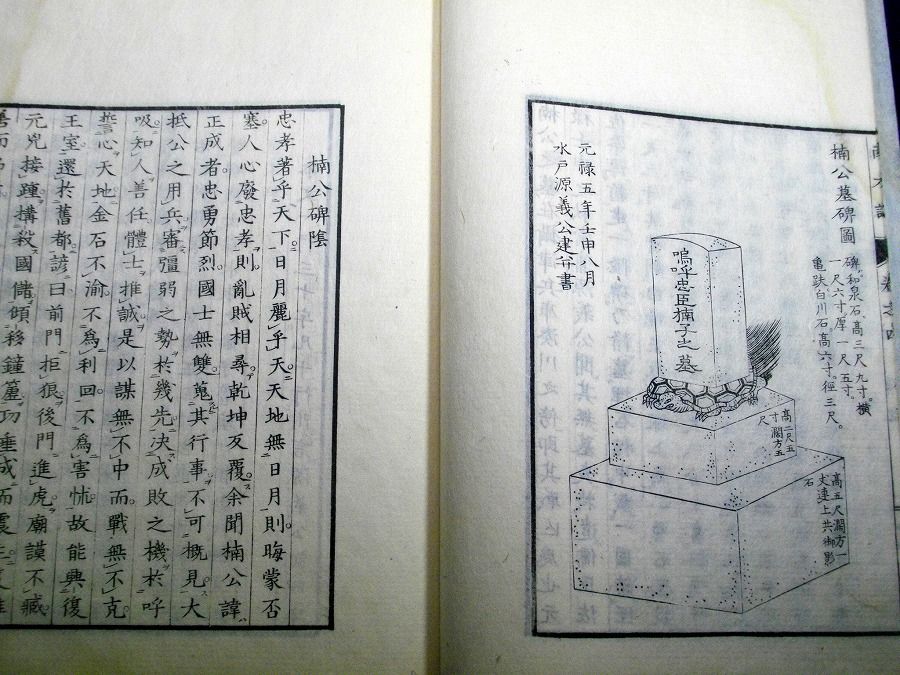 楠公墓碑圖
碑、和泉石、高三尺九寸。橫
一尺六寸厚一尺五寸。
亀趺白川石。高六寸。徑三尺。
嗚呼忠臣楠子之墓
高二尺五
寸濶方五
尺
高五尺濶方一
丈連上共御影
石
元禄五年壬申八月
水戸源義公建弁書
楠公碑陰
忠孝著乎天下日月麗乎天天地無日月則晦蒙否
塞人心廢忠孝則亂賊相尋乾坤反覆余聞楠公諱
正成者忠勇節烈國士無雙蒐其行事不可概見大
抵公之用兵審彊弱之勢於幾先决成敗之機於呼
吸知人善任體士推誠是以謀無不中而戰無不克
誓心天地金石不渝不為利回不為害怵故能興復
王室還於舊都諺曰前門拒狼後門進虎廟謨不臧
元兇接踵構殺國儲傾移鐘簴功垂成而震主
善而